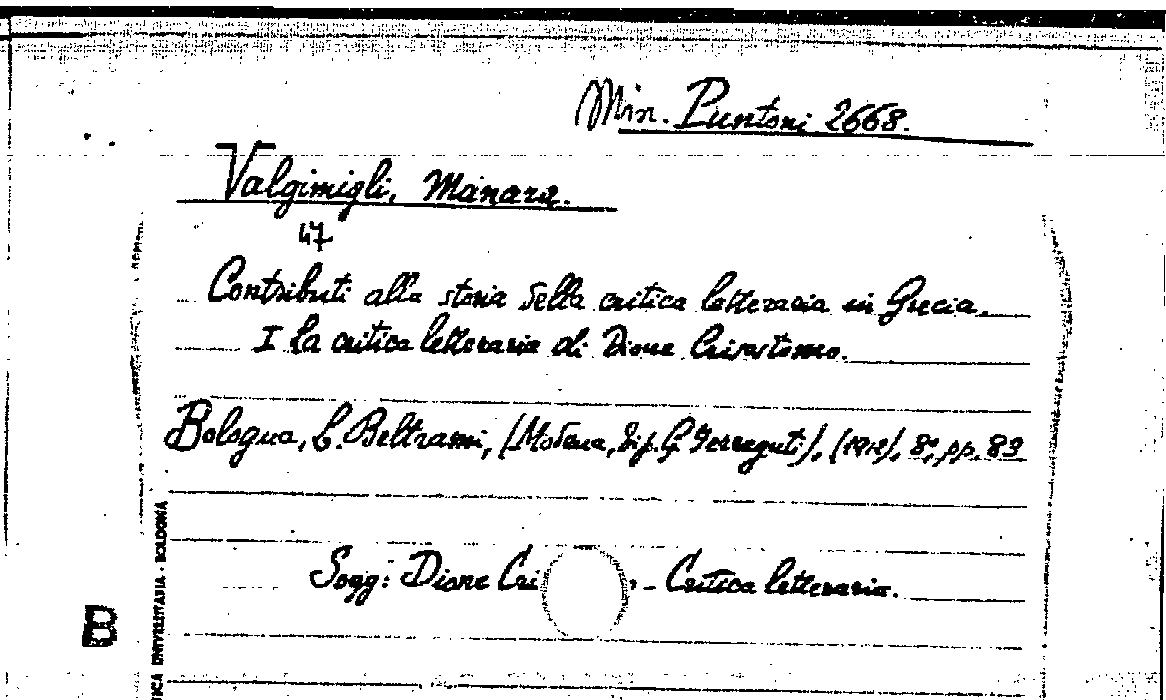 Min. Puntoni 2668.
Valgimigli, Manara.
47
Contributi alla storia della critica letteraria in Grecia.
I La critica letteraria di Dione Crisostomo.
Bologna, L. Beltrami, (Modena, Tip. G. Ferraguti), (1912), 8°, pp. 83
Sogg: Dione Cri - Critica letteraria.
TICA UNIVERSITARIA - BOLOGNA
B